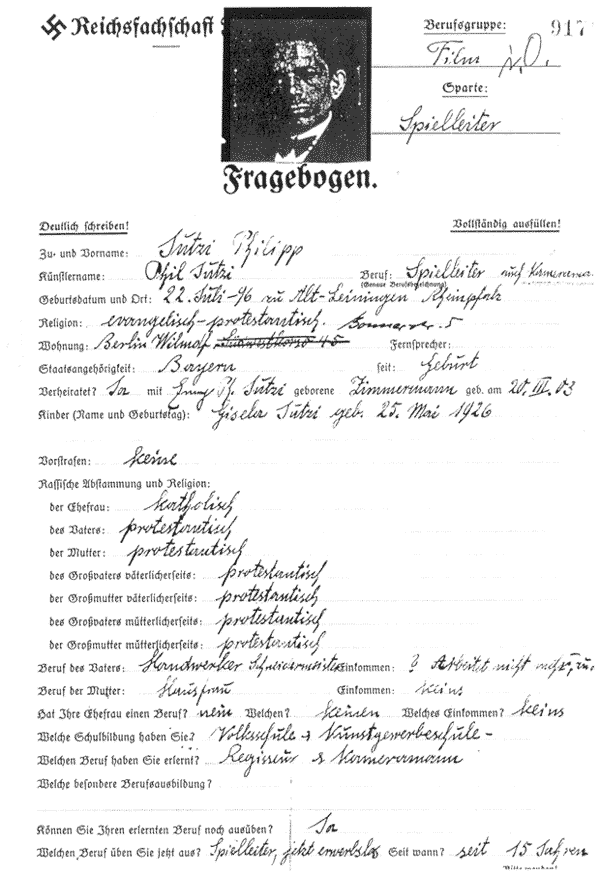 Reichsfachschaft
Berufsgruppe: 917
Film
Sparte:
Spielleiter
Fragebogen.
Deutlich schreiben! Vollständig ausfüllen!
Zu- und Vorname: Jutzi Philipp
Künstlername: Phil Jutzi Beruf: Spielleiter auch Kameramann
(Genaue Berufsbezeichnung)
Geburtsdatum und Ort: 22. Juli-96 zu Alt-Leiningen Rheinpfalz
Religion: evangelisch-protestantisch.
Wohnung: Berlin Wilmdf Südwestkorso 45 Fernsprecher:
Staatsangehörigkeit: Bayern seit: Geburt
Verheiratet? Ja mit Ph. Jutzi geborene Zimmermann geb. am 20. III. 03
Kinder (Name und Geburtstag): Gisela Jutzi geb. 25. Mai 1926
Vorstrafen: keine
Rassische Abstammung und Religion:
der Ehefrau: katholisch
des Vaters: protestantisch
der Mutter: protestantisch
des Großvaters väterlicherseits: protestantisch
der Großmutter väterlicherseits: protestantisch
des Großvaters mütterlicherseits: protestantisch
der Großmutter mütterlicherseits: protestantisch
Beruf des Vaters: Handwerker Schneidermeister Einkommen: ? Arbeitet nicht mehr,
Beruf der Mutter: Hausfrau Einkommen: keins
Hat Ihre Ehefrau einen Beruf? nein Welchen? keinen Welches Einkommen? keins
Welche Schulbildung haben Sie? Volksschule & Kunstgewerbeschule-
Welchen Beruf haben Sie erlernt? Regisseur & Kameramann
Welche besondere Berufsausbildung?
Können Sie Ihren erlernten Beruf noch ausüben? Ja
Welchen Beruf üben Sie jetzt aus? Spielleiter, jetzt erwerbslos Seit wann? seit 15 Jahren